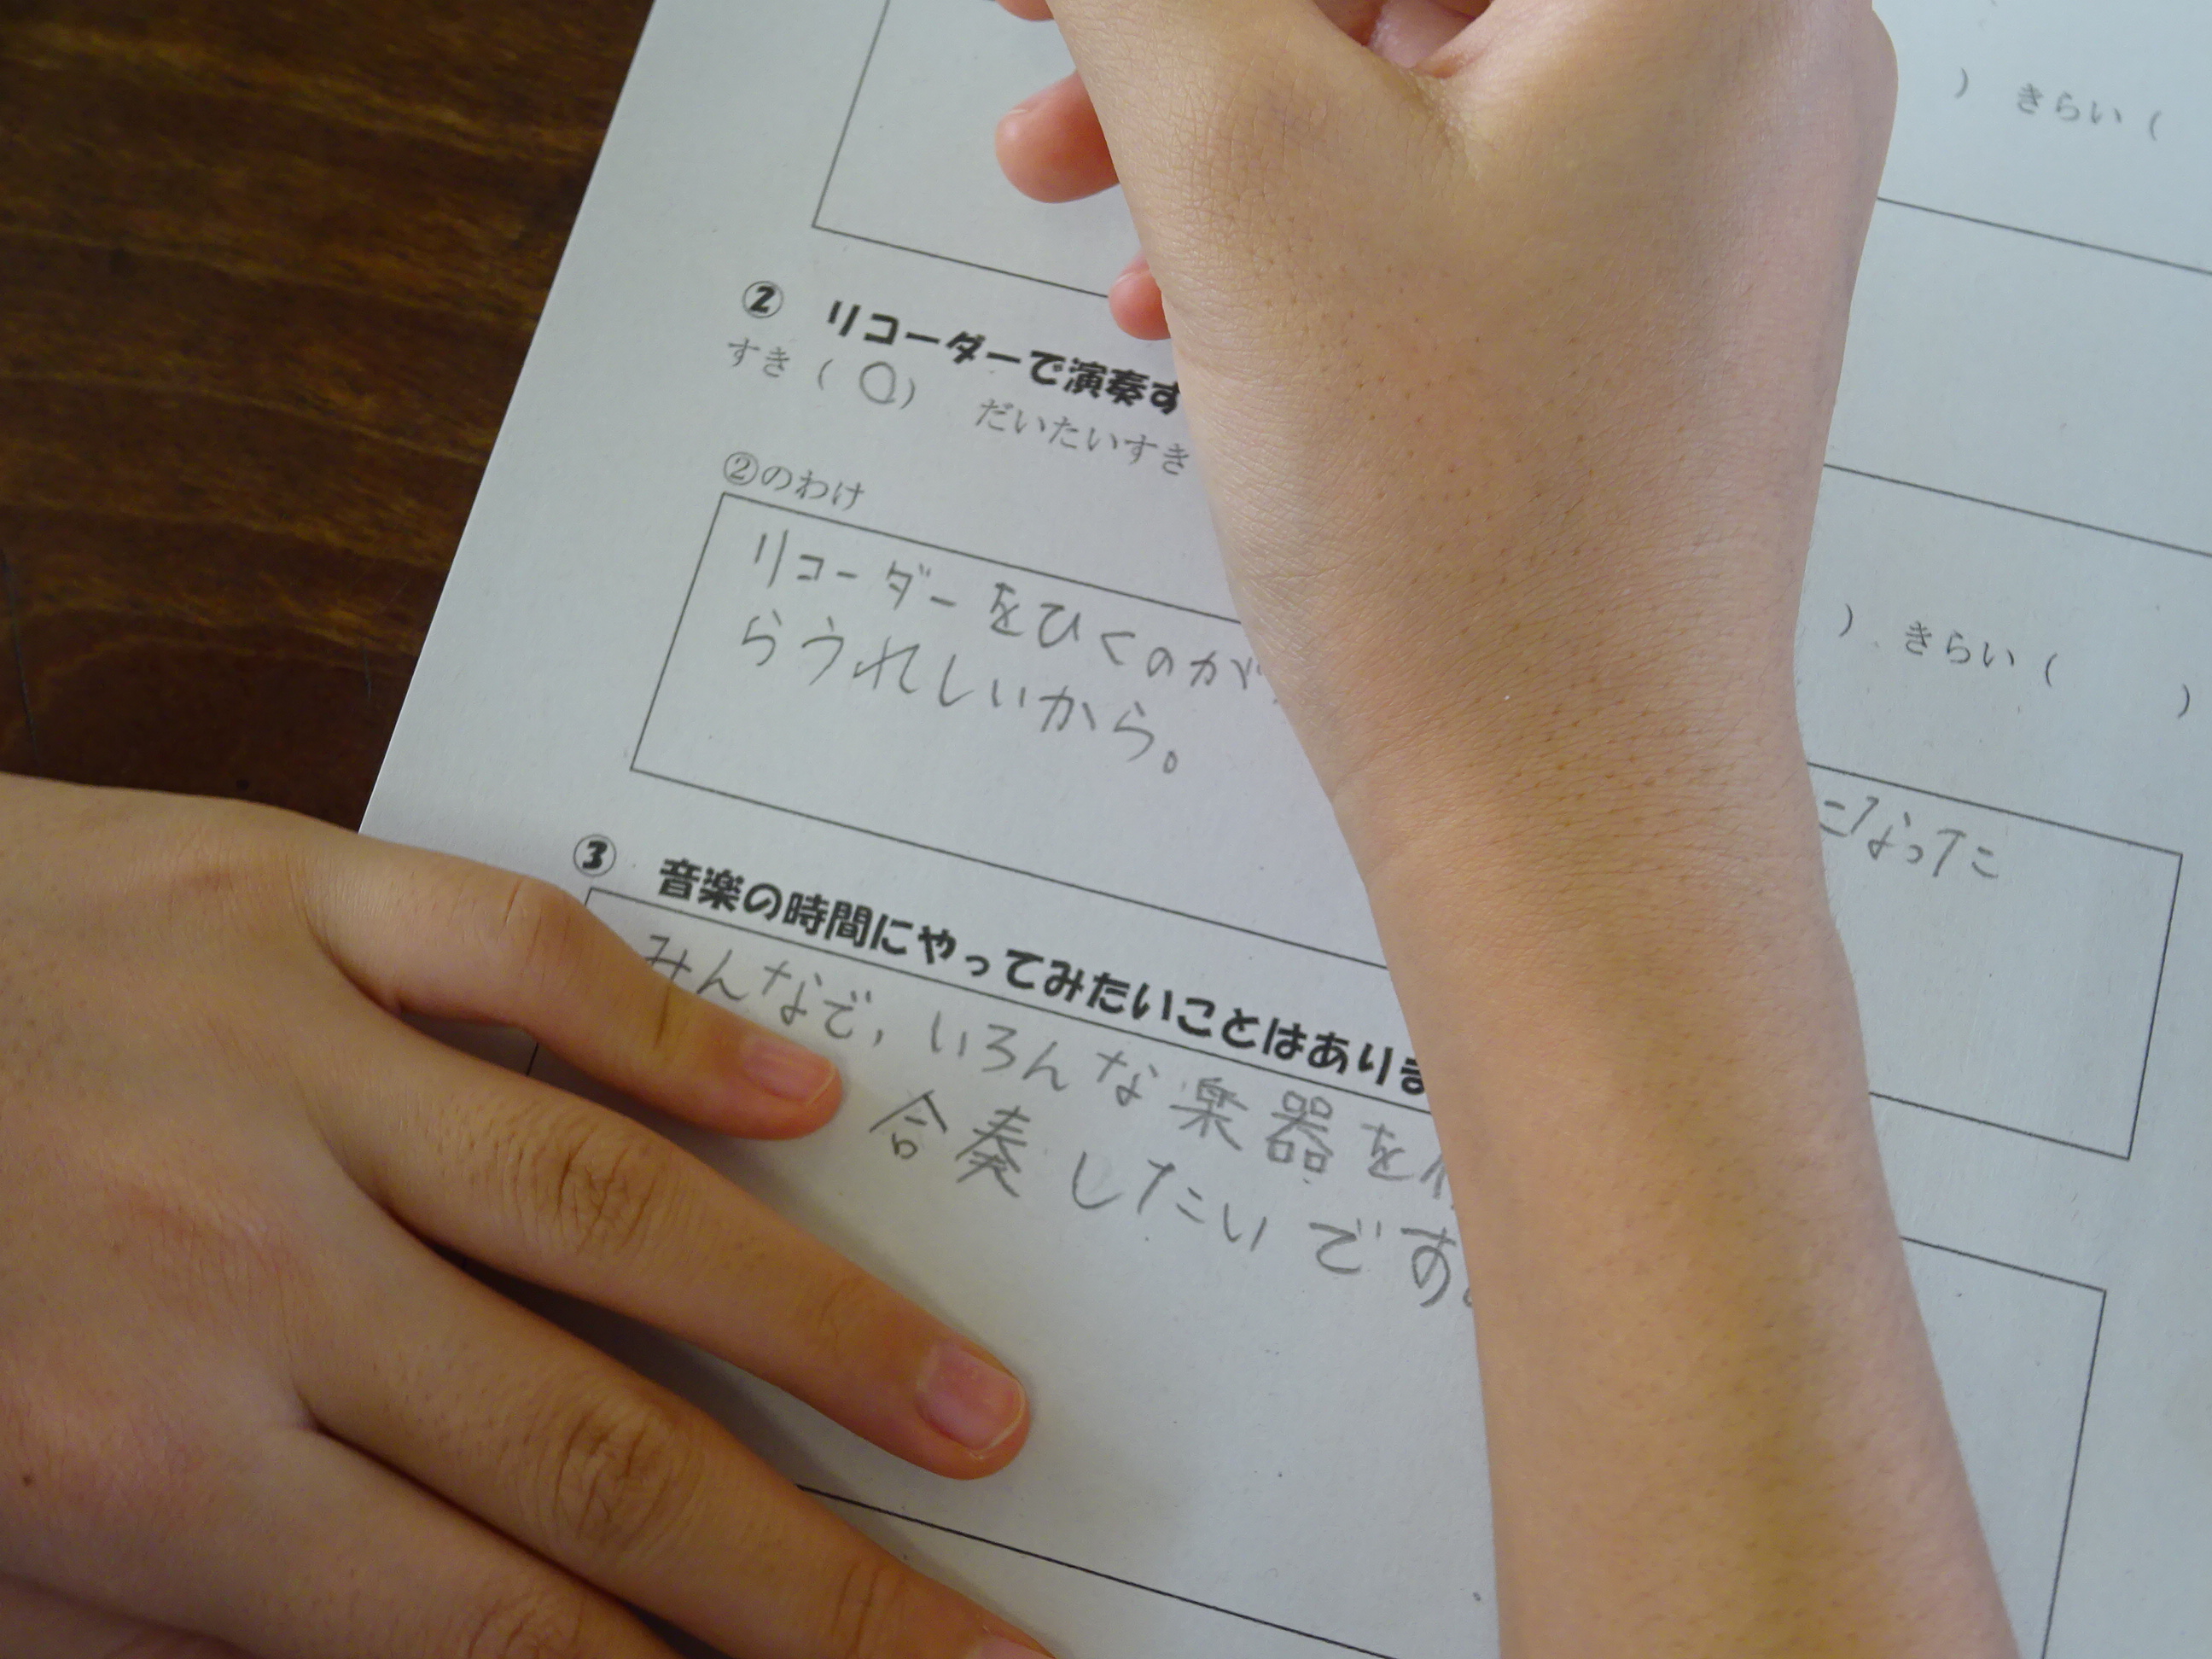 ) きらい (
② リコーダーで演奏す
すき ( ○ ) だいたいすき
) きらい ( )
②のわけ
リコーダーをひくのが
になったこ
らうれしいから。
③ 音楽の時間にやってみたいことはありま
みんなで, いろんな楽器を
合奏したいです。